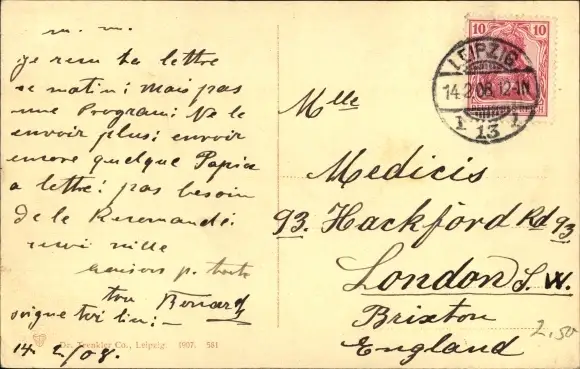 m. m.
je recu ta lettre
se matin; mais pas
une Program; Ne le
envoir plus; envoir
encore quelque Papier
a lettre; pas besoin
de le Recomandé.
mille
baisers p. toute
ton Bernard
soigne toi bien;-
14 2/08.
Dr. Trenkler Co., Leipzig. 1907. 581
10 10
LEIPZIG
14.2.08.12-1N
1 13 1
Mlle
Medicis
93. Hackford Rd 93
London S. W.
Brixton
England
2.50